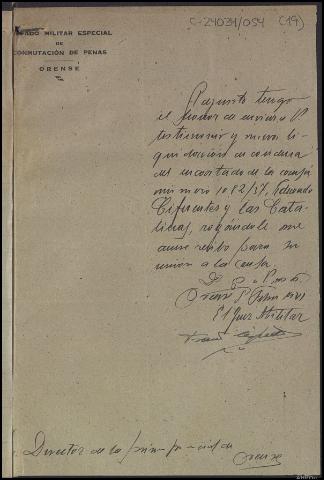 C-24034/054 (19)
JUZGADO MILITAR ESPECIAL
DE
CONMUTACIÓN DE PENAS
ORENSE
Adjunto tengo
el honor de enviar a V
testimonio y nueva li-
quidación de condena
del encartado de la causa
número 1082/37, 
Cifuentes y las Cata-
linas, rogándole me
acuse recibo para su
unión a la causa.
Orense
El Juez Militar
Director de la prisión provincial de
Orense